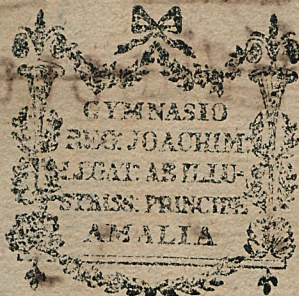 GYMNASIO
REG. JOACHIM.
LEGAT. AB ILLU-
STRISS. PRINCIPE
AMALIA